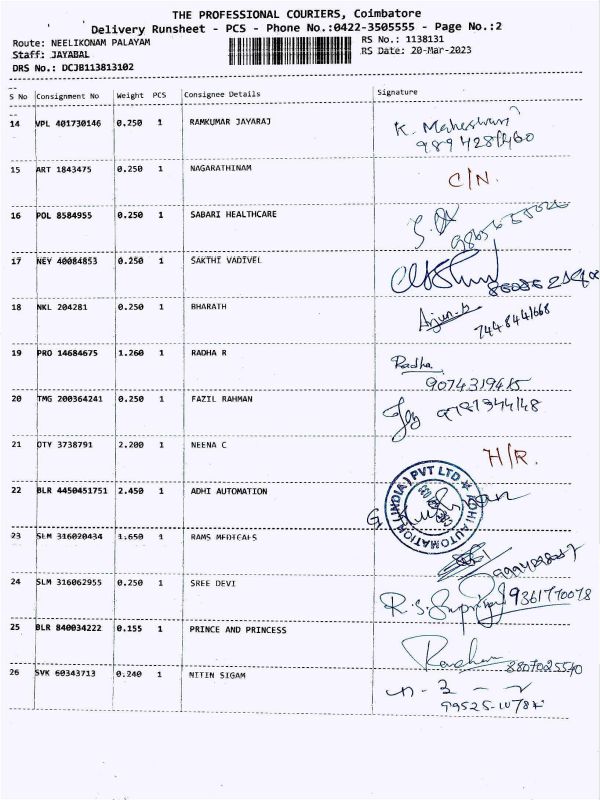 THE PROFESSIONAL COURIERS, Coimbatore
Delivery Runsheet - PCS - Phone No.:0422-3505555 - Page No.:2
Route: NEELIKONAM PALAYAM RS No.: 1138131
Staff: JAYABAL RS Date: 20-Mar-2023
DRS No.: DCJB113813102
S No Consignment No Weight PCS Consignee Details Signature
14 VPL 401730146 0.250 1 RAMKUMAR JAYARAJ K. Maheswari
15 ART 1843475 0.250 1 NAGARATHINAM C/N.
16 POL 8584955 0.250 1 SABARI HEALTHCARE
17 NEY 40084853 0.250 1 SAKTHI VADIVEL
18 NKL 204281 0.250 1 BHARATH Arjun.
7448441668
19 PRO 14684675 1.260 1 RADHA R Radha
9074319415
20 TMG 200364241 0.250 1 FAZIL RAHMAN
21 OTY 3738791 2.200 1 NEENA C H/R.
22 BLR 4450451751 2.450 1 ADHI AUTOMATION
ADHI AUTOMATION (INDIA) PVT LTD
23 SLM 316020434 1.650 1 RAMS MEDICALS
24 SLM 316062955 0.250 1 SREE DEVI 9361770078
25 BLR 840034222 0.155 1 PRINCE AND PRINCESS
8807025540
26 SVK 60343713 0.240 1 NITIN SIGAM